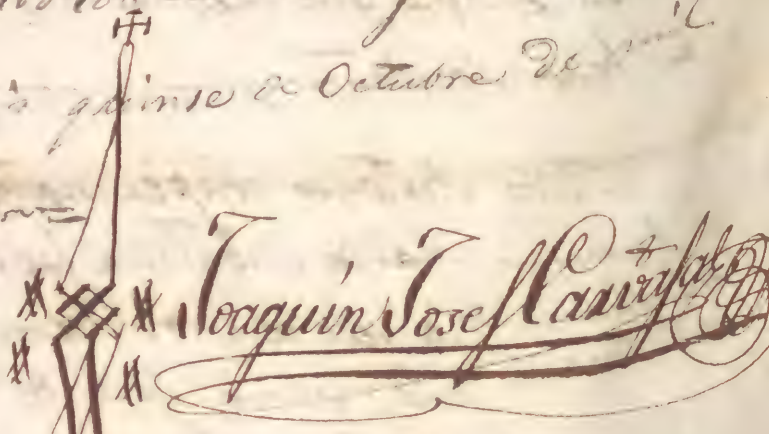 quinse de Octubre de mil
Joaquin Josef Carvajal